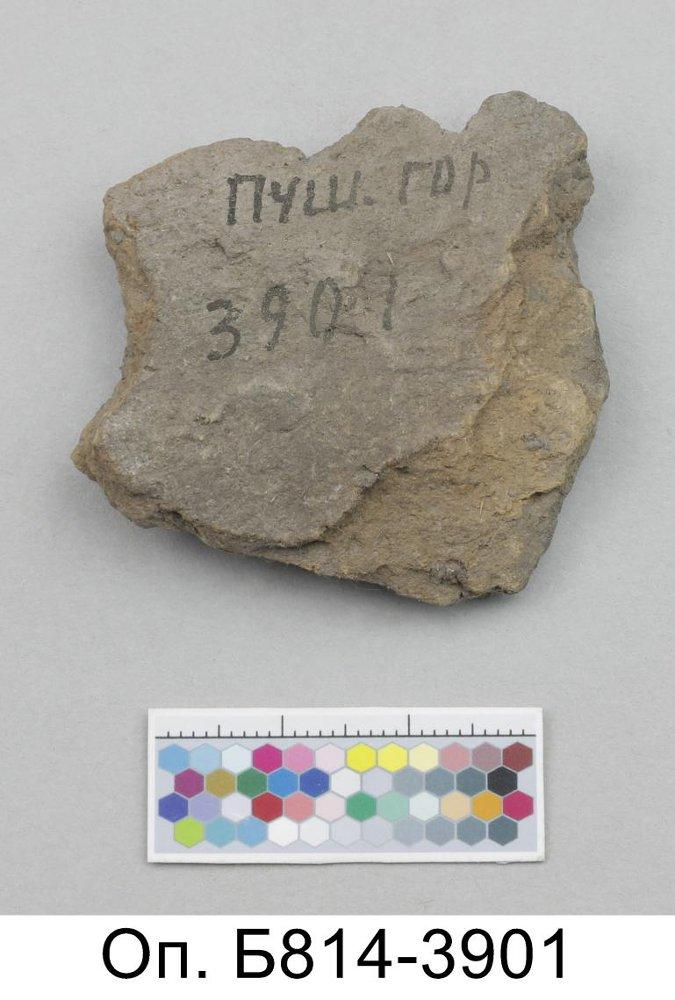 ПУШ. ГОР
3901
Оп. Б814-3901